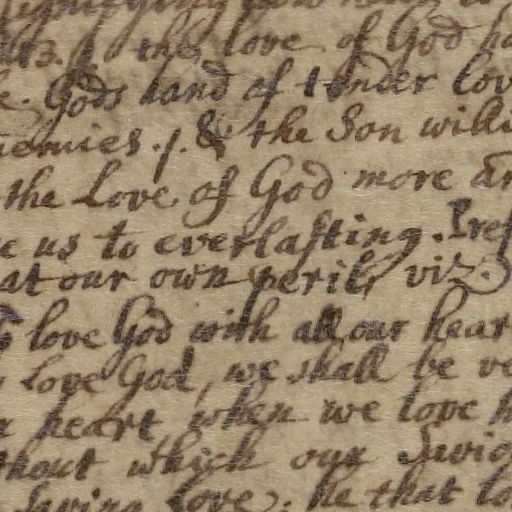 the love of God
Gods hand of tender lov
nemies . /. & the Son willi
the Love of God more an
e us to everlasting . I res
at our own peril, viz.
love God with all our hear
love God, we shall be ve
heart when we love h
thout which our
Saving love. he that lo